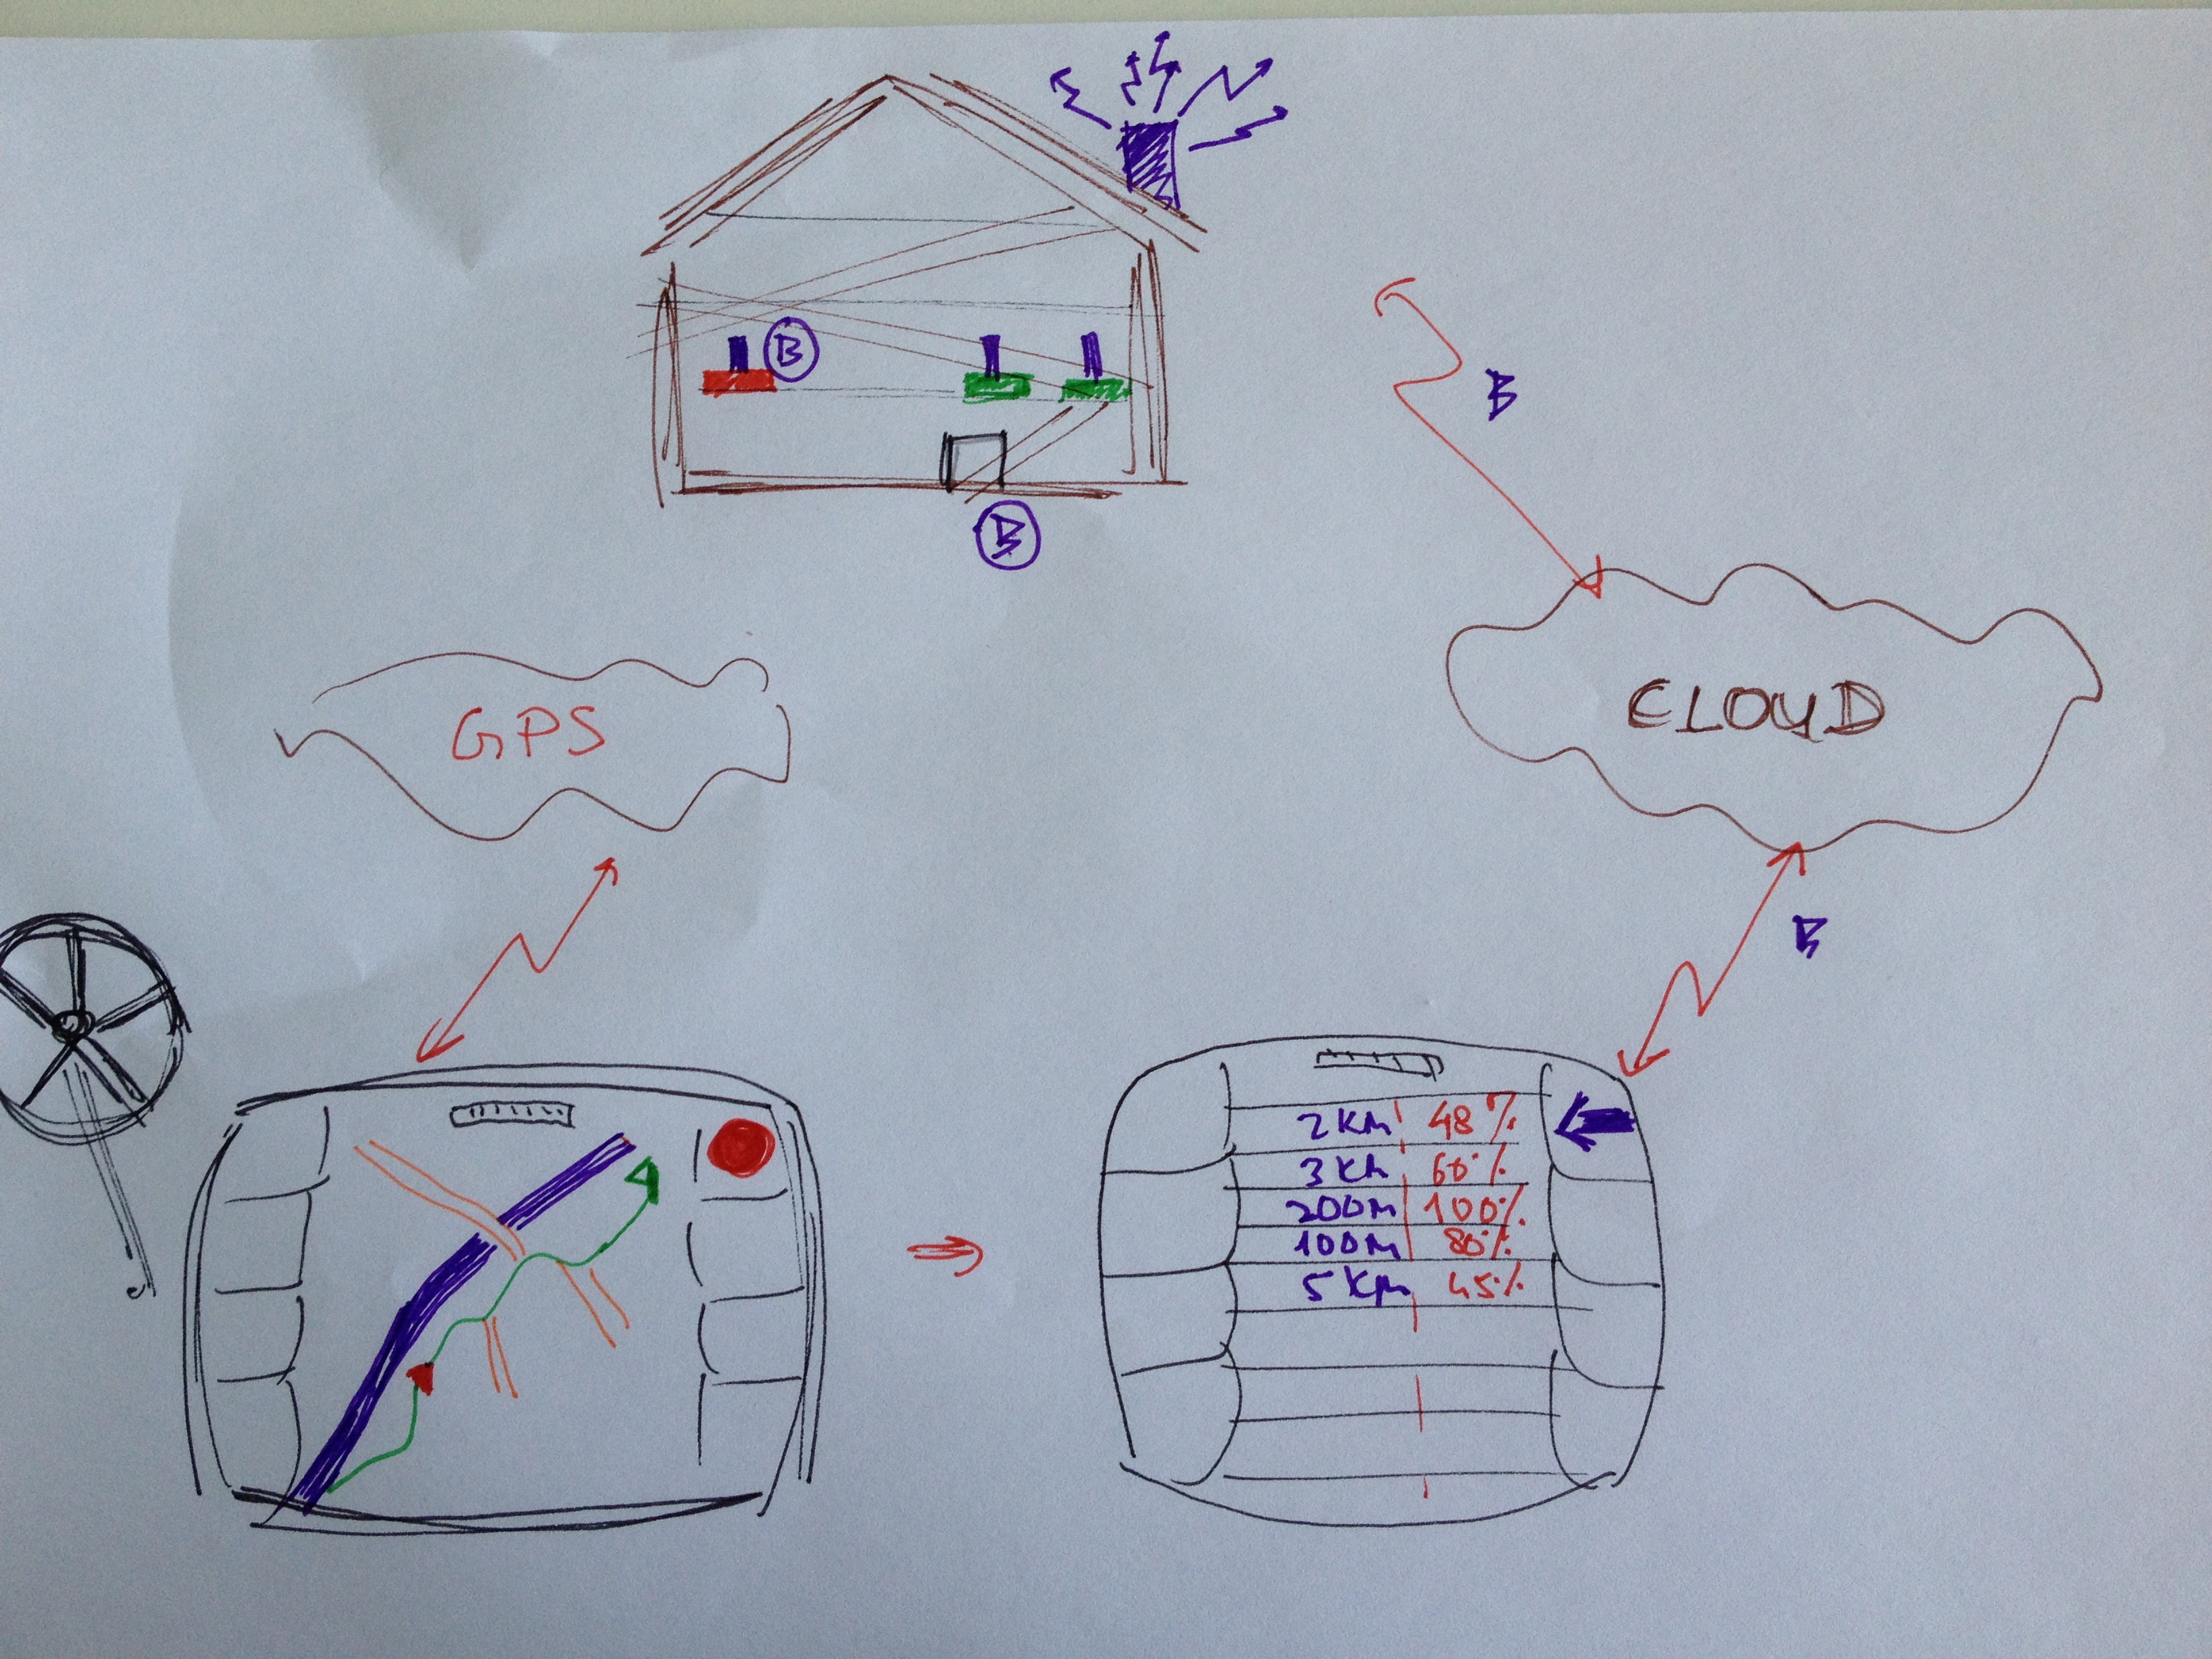 B
B
B
GPS
CLOUD
B
2 KM 48%
3 KM 60%
200M 100%
100M 80%
5 KM 45%